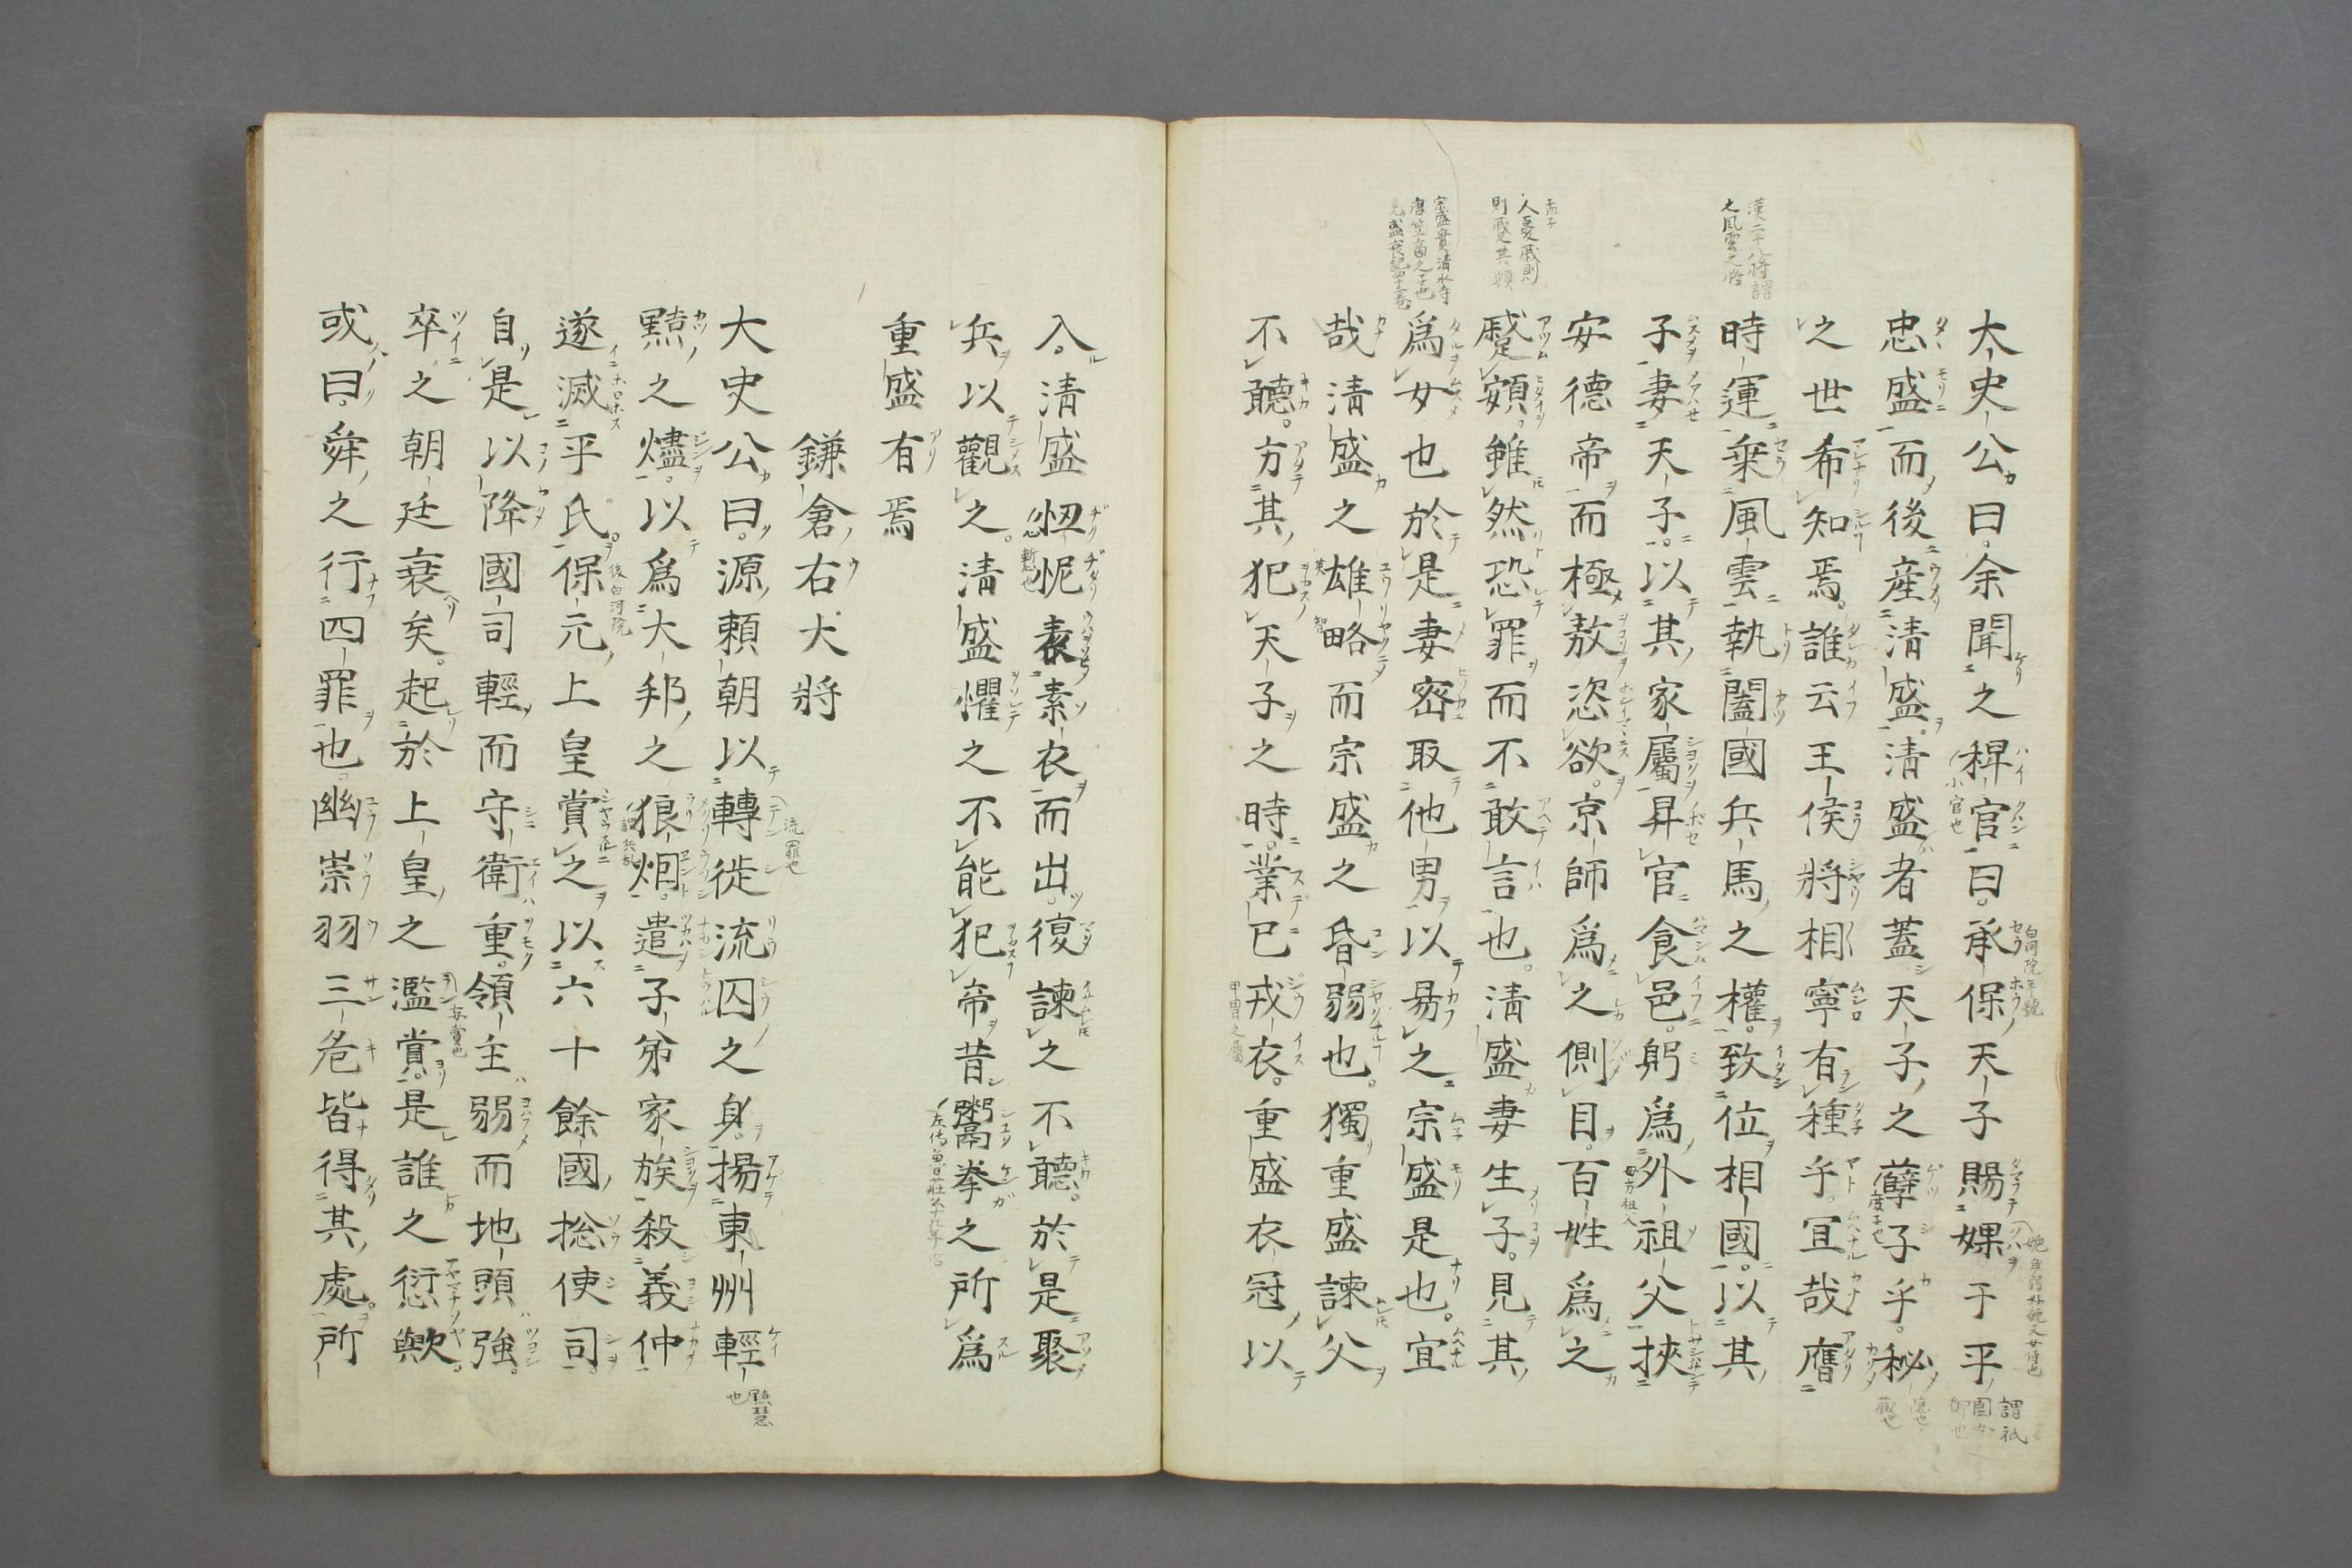 大史公曰余聞之稗官曰承保天子賜婐于平
忠盛而後産淸盛淸盛者蓋天子之孽子乎秘
之世希知焉誰云王侯將相寧有種乎冝哉膺
時運乗風雲執闔國兵馬之權致位相國以其
子妻天子以其家屬昇官食邑躬爲外祖父挾
安德帝而極敖恣欲京師爲之側目百姓爲之
蹙頞雖然恐罪而不敢言也淸盛妻生子見其
爲女也於是妻密取他男以易之宗盛是也宜
哉淸盛之雄略而宗盛之昏弱也獨重盛諫父
不聽方其犯天子之時業已戎衣重盛衣冠以
入淸盛忸怩表素衣而出復諫之不聽於是聚
兵以觀之淸盛懼之不能犯帝昔鬻拳之所爲
重盛有焉
鎌倉右大將
大史公曰源賴朝以轉徙流囚之身揚東州輕
黠之燼以爲大邦之狼烟遣子弟家族殺義仲
遂滅平氏保元上皇賞之以六十餘國捴使司
自是以降國司輕而守衛重領主弱而地頭強
卒之朝廷衰矣起於上皇之濫賞是誰之愆歟
或曰舜之行四罪也幽崇羽三危皆得其處所
漢二十八将謂
之風雲之将
孟子
人憂戚則
則蹙其頞
小官也
白河院年號
謂祇
園女
御也
母方祖父
甲冑之屬
慙也
流罪也
後白河院
黠慧
也